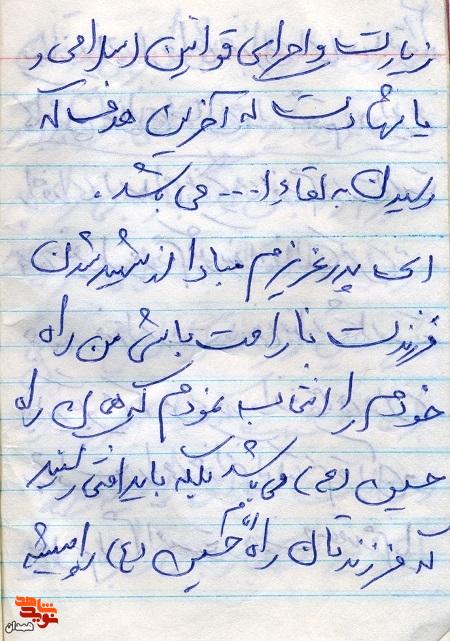 زیارت و اجرای قوانین اسلامی و
یا شهادت که آخرین هدف که
رسیدن به لقاء ا... می باشد.
ای پدر عزیزم مبادا از شهید شدن
فرزندت ناراحت باشی من راه
خودم را انتخاب نمودم که راه
حسین (ع) می باشد بلکه باید افتخار کنید
که فرزندتان راه امام حسین (ع) را پیشه
نوید شاهد
همدان